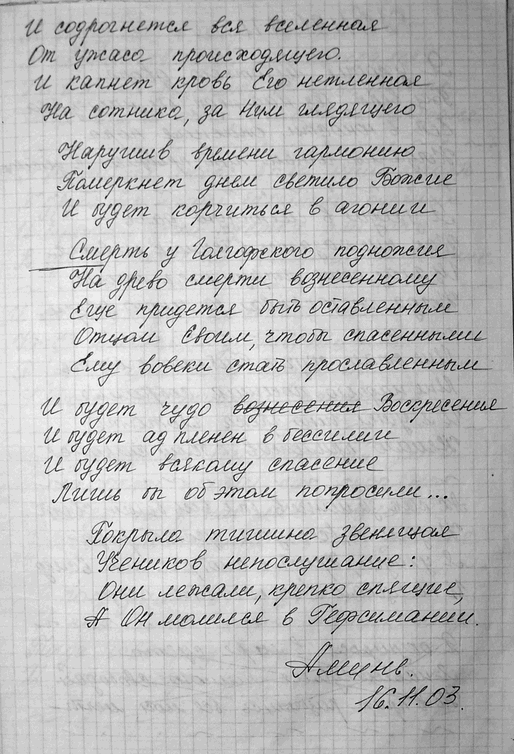 И содрогнется вся вселенная
От ужаса происходящего.
И капнет кровь Его нетленная
На сотника, за Ним глядящего
Нарушив времени гармонию
Померкнет днем светило Божие
И будет корчиться в агонии
Смерть у Голгофского подножия
На древо смерти вознесенному
Еще придется быть оставленным
Отцом Своим, чтобы спасенными
Ему вовеки стать прославленным
И будет чудо вознесения Воскресения
И будет ад пленен в бессилии
И будет всякому спасение
Лишь бы об этом попросили...
Покрыла тишина звенящая
Учеников непослушание:
Они лежали, крепко спящие,
А Он молился в Гефсимании.
Аминь.
16.11.03.